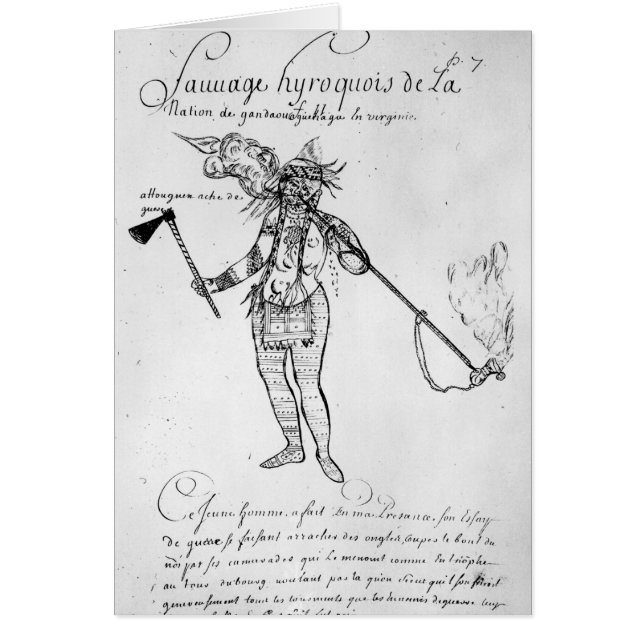 p. 7
Sauuage hyroquois de La
Nation de gandaouaguehaga En virginie.
attouguen ache de
guerre
Ce Jeune homme a fait En ma Presance son Essay
de guerre se faisant arracher des ongles, Coupes le bout du
nés par ses camarades qui Le menoint comme En triõphe
au tour du bourg voulant par la quon sceut quil souffriroit
genereusement tous les tourments que les